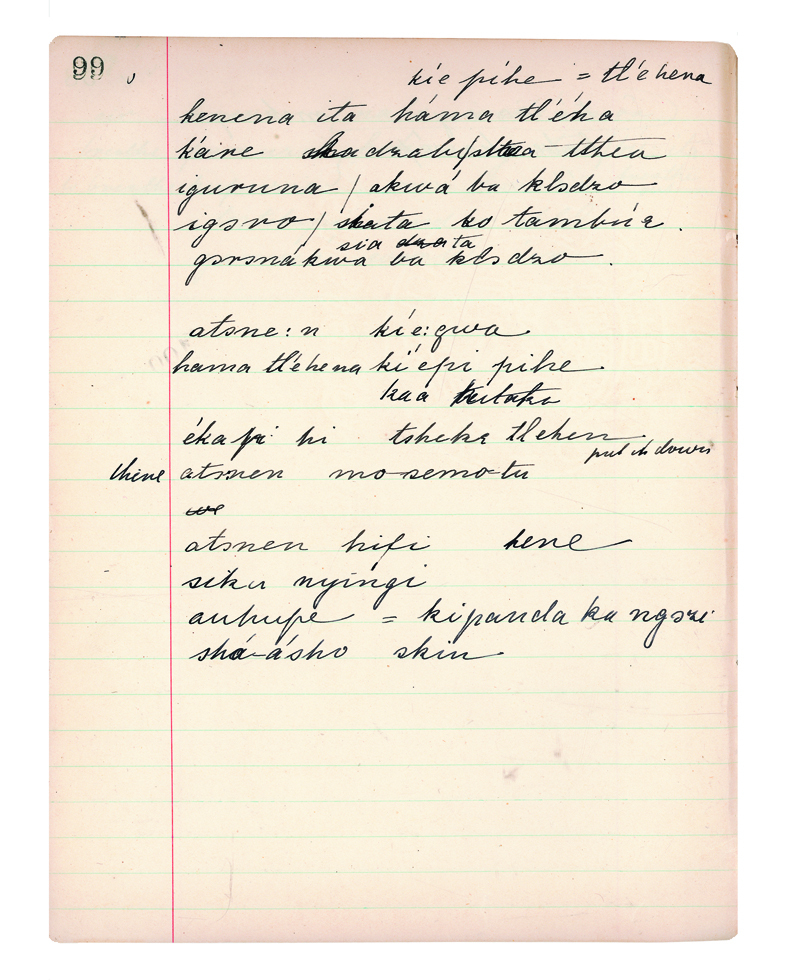 99
kíe píhe = tl'éhena
henena ita háma tl'éha
káre adzabi tthea
iguruna / akwá ba klsdzo
igsro / ata ko tambúe.
sia ata
gsrsnákwa ba klsdzo.
atsne:n kíe:gwa.
hama tl'éhena kí'épi pihe.
kaa
éka hi tsheka tlehen
put it down
thine atsnen mosemotu
atsnen hifi hene
siku nyingi
auhupe = kipanda ka ngozi
shá-ásho skin.